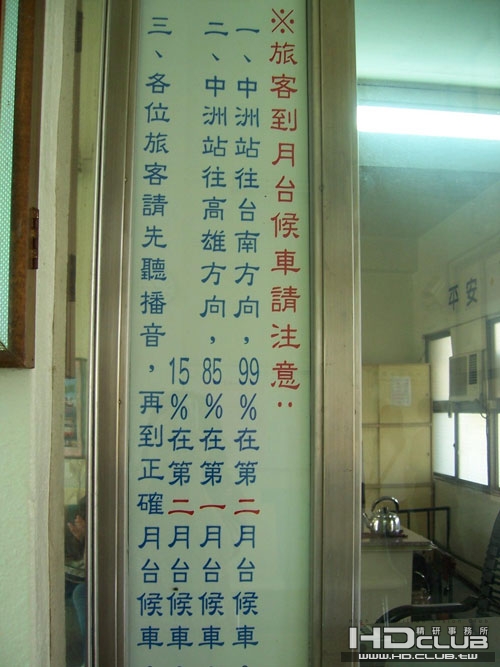 ※旅客到月台候車請注意：
一、中洲站往台南方向，99%在第二月台候車。
二、中洲站往高雄方向，85%在第一月台候車
15%在第二月台候車
三、各位旅客請先聽播音，再到正確月台候車
平安
HDCLUB
精研事務所
WWW.HD.CLUB.TW